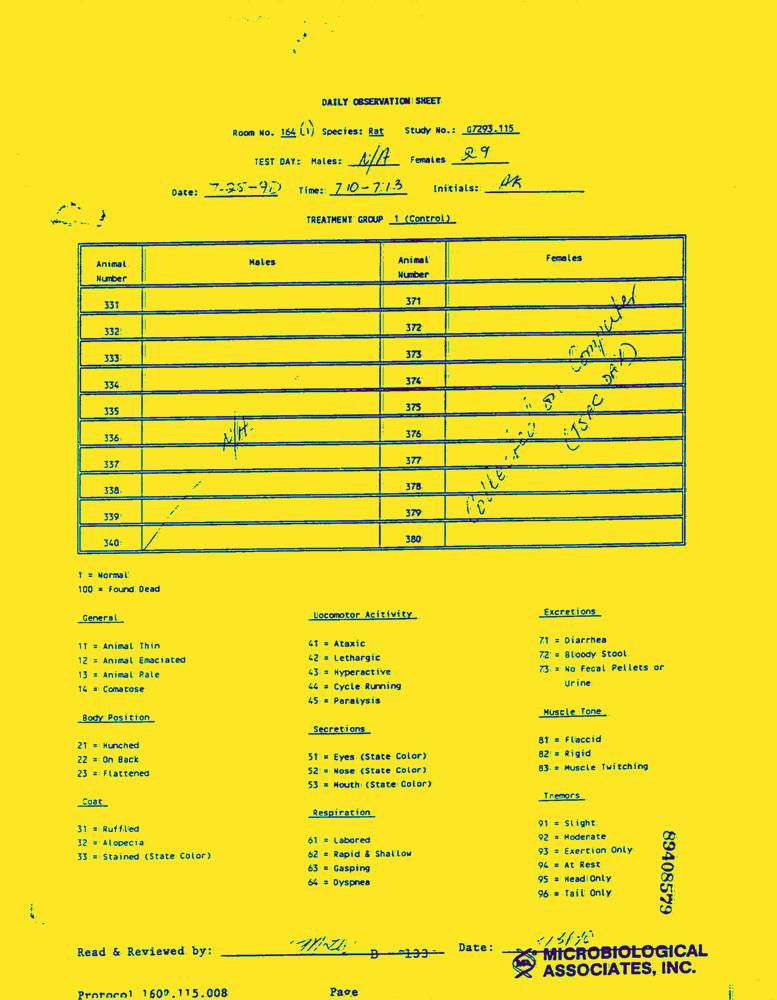 DAILY OBSERVATION SHEET
Room No. 164 (1) Species: Rat Study No.: G7293.115
TEST DAY: Males: N/A Females 29
Date: 7-25-90 Time: 710-713 Initials: AK
TREATMENT GROUP 1 (Control)
Animal Number Males Animal Number Females
331 371
332 372
333 373
334 374
335 375
336 N/A 376
337 377
338 378
339 379
340 380
Collected on Computer
(TSAC DAR)
1 = Normal
100 = Found Dead
General
11 = Animal Thin
12 = Animal Emaciated
13 = Animal Pale
14 = Comatose
Body Position
21 = Hunched
22 = On Back
23 = Flattened
Coat
31 = Ruffled
32 = Alopecia
33 = Stained (State Color)
Locomotor Acitivity
41 = Ataxic
42 = Lethargic
43 = Hyperactive
44 = Cycle Running
45 = Paralysis
Secretions
51 = Eyes (State Color)
52 = Nose (State Color)
53 = Mouth (State Color)
Respiration
61 = Labored
62 = Rapid & Shallow
63 = Gasping
64 = Dyspnea
Excretions
71 = Diarrhea
72 = Bloody Stool
73 = No Fecal Pellets or
Urine
Muscle Tone
81 = Flaccid
82 = Rigid
83 = Muscle Twitching
Tremors
91 = Slight
92 = Moderate
93 = Exertion Only
94 = At Rest
95 = Head Only
96 = Tail Only
89408579
Read & Reviewed by: D -133- Date:
MICROBIOLOGICAL
ASSOCIATES, INC.
Protocol 1609.115.008 Page